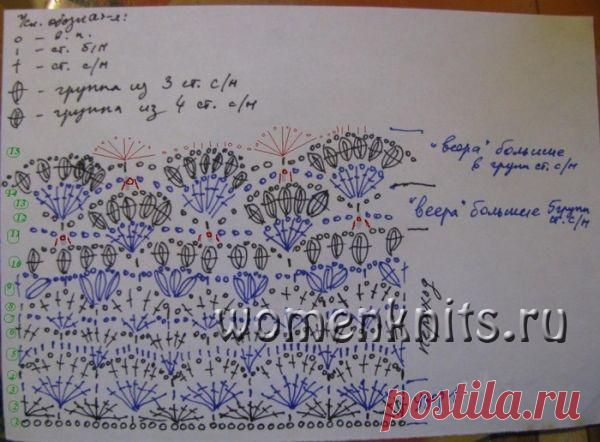 Усл. обознач-я:
о - в.п.
ı - ст. б/н
† - ст. с/н
- группа из 3 ст. с/н
- группа из 4 ст. с/н
"веера" большие
в групп ст. с/н
"веера" большие 5групп
ст. с/н
переход
веера
13
14
13
12
11
10
9
8
7
6
5
4
3
2
1
womenknits.ru
postila.ru